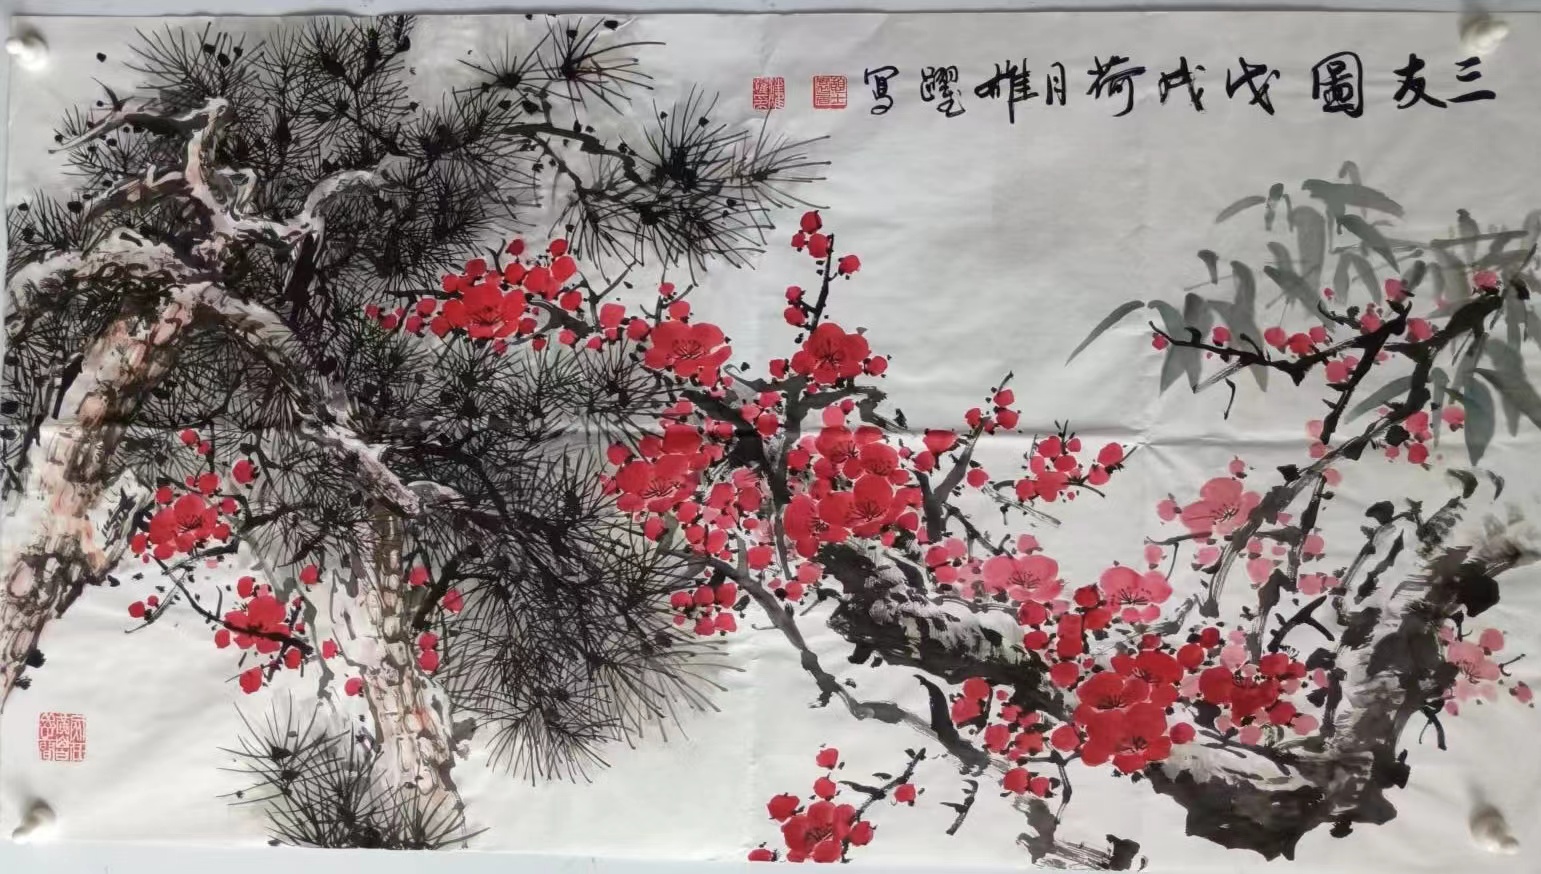 三友圖戊戌荷月雄躍寫